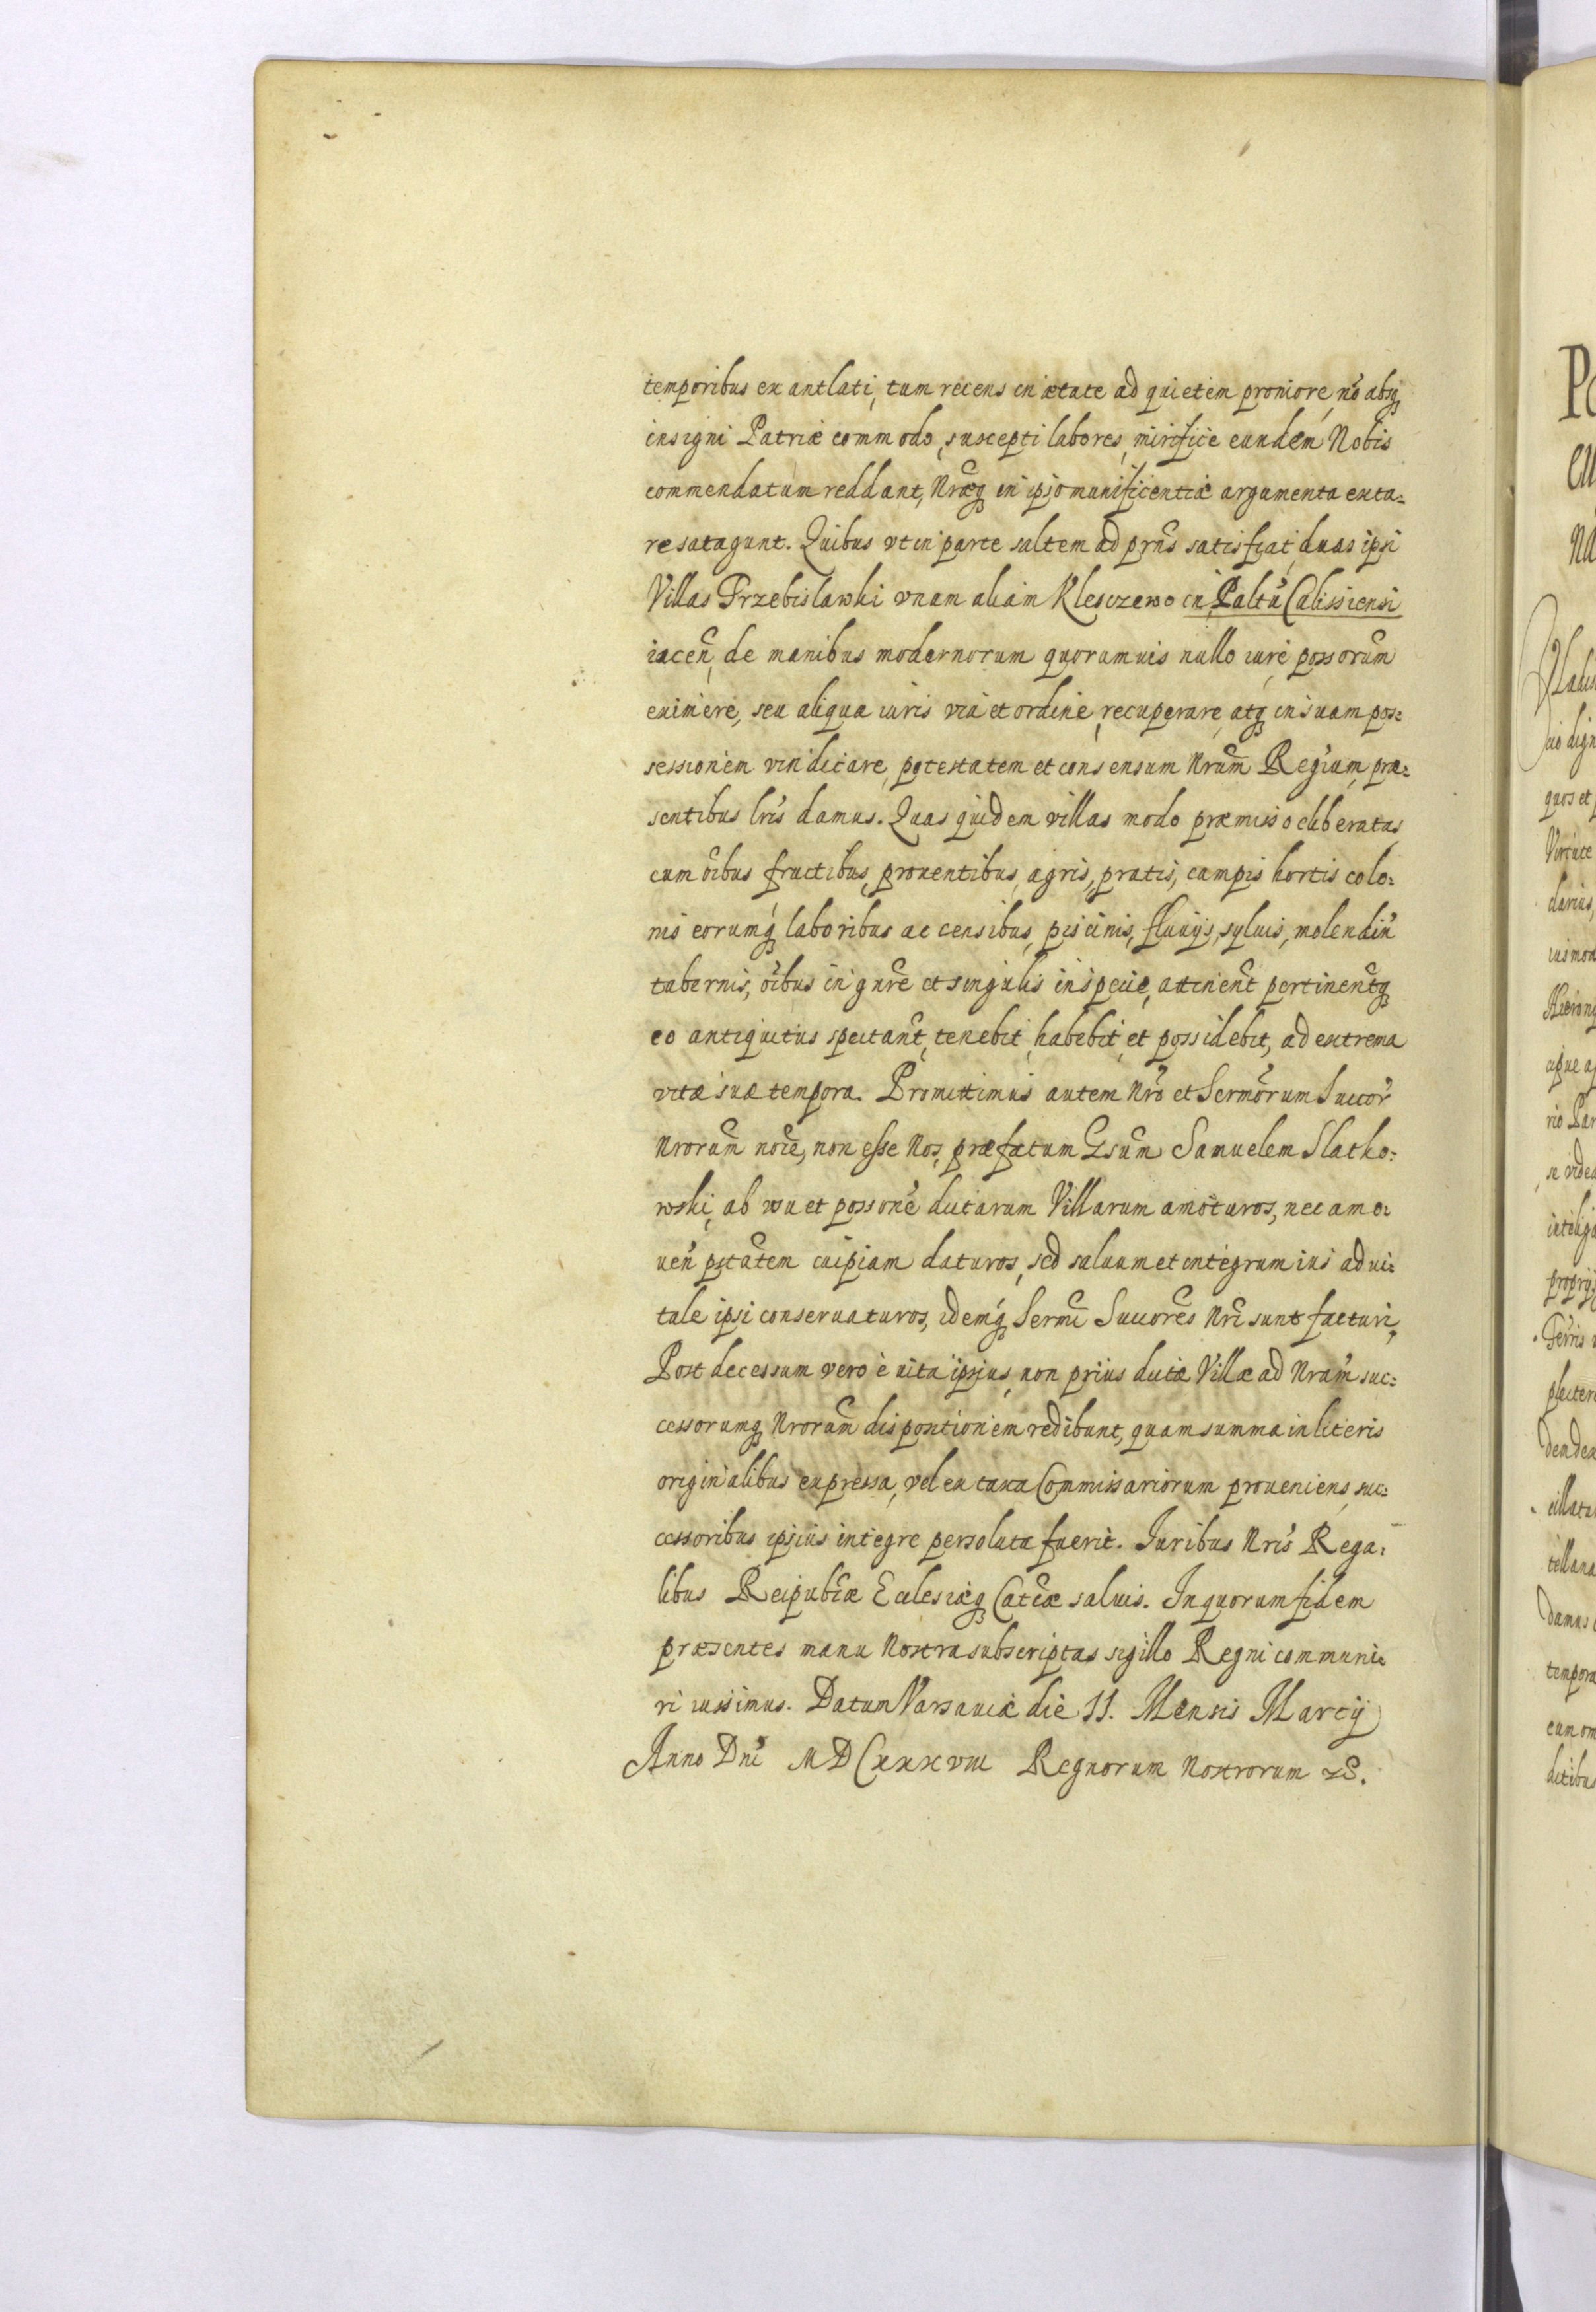 temporibus exantlati, tum recens in ætate ad quietem proniore, nō absq
insigni Patriæ commodo, suscepti labores, mirifice eundem Nobis
commendatum reddant, Nræq in ipso munificentiæ argumenta exta=
re satagunt. Quibus vt in parte saltem ad prn̄s satisfiat, duas ipsi
Villas Przebislawki vnam aliam Klesczewo in Paltū Calissiensi
iacen̄, de manibus modernorum quorumuis nullo iure possorum̄
eximere, seu aliqua iuris via et ordine, recuperare, atq in suam pos=
sessionem vindicare, potestatem et consensum Nrum̄ Regium, præ=
sentibus lris damus. Quas quidem villas modo præmisso eliberatas
cum oībus fructibus, prouentibus, agris, pratis, campis hortis colo=
nis eorumq laboribus ac censibus, piscinis, fluuijs, syluis, molendin̄
tabernis, oībus in gnrē et singulis in specie, attinen̄t pertinen̄tq
eo antiquitus spectan̄t, tenebit, habebit, et possidebit, ad extrema
vitæ suæ tempora. Promittimus autem Nrō et Sermōrum Succor̄
Nrorum̄ noīe, non esse Nos, præfatum Gsum̄ Samuelem Slatko=
wski, ab vsu et possonē dictarum Villarum amoturos, nec amo=
uen̄ ptātem cuipiam daturos, sed saluum et integrum ius adui=
tale ipsi conseruaturos, idemq Sermī Succorēs Nrī sunt facturi,
Post decessum vero è uita ipsius, non prius dictæ Villæ ad Nram̄ suc=
cessorumq Nrorum̄ dispositionem redibunt, quam summa in literis
originalibus expressa, vel ex taxa Commissariorum proueniens, suc=
cessoribus ipsius integre persoluta fuerit. Iuribus Nrīs Rega=
libus Reipublīcæ Ecclesiæq Catcæ saluis. In quorum fidem
præsentes manu Nostra subscriptas sigillo Regni communi=
ri iussimus. Datum Varsauiæ die 11. Mensis Martij
Anno Dnī MDCxxxviii Regnorum Nostrorum &c.